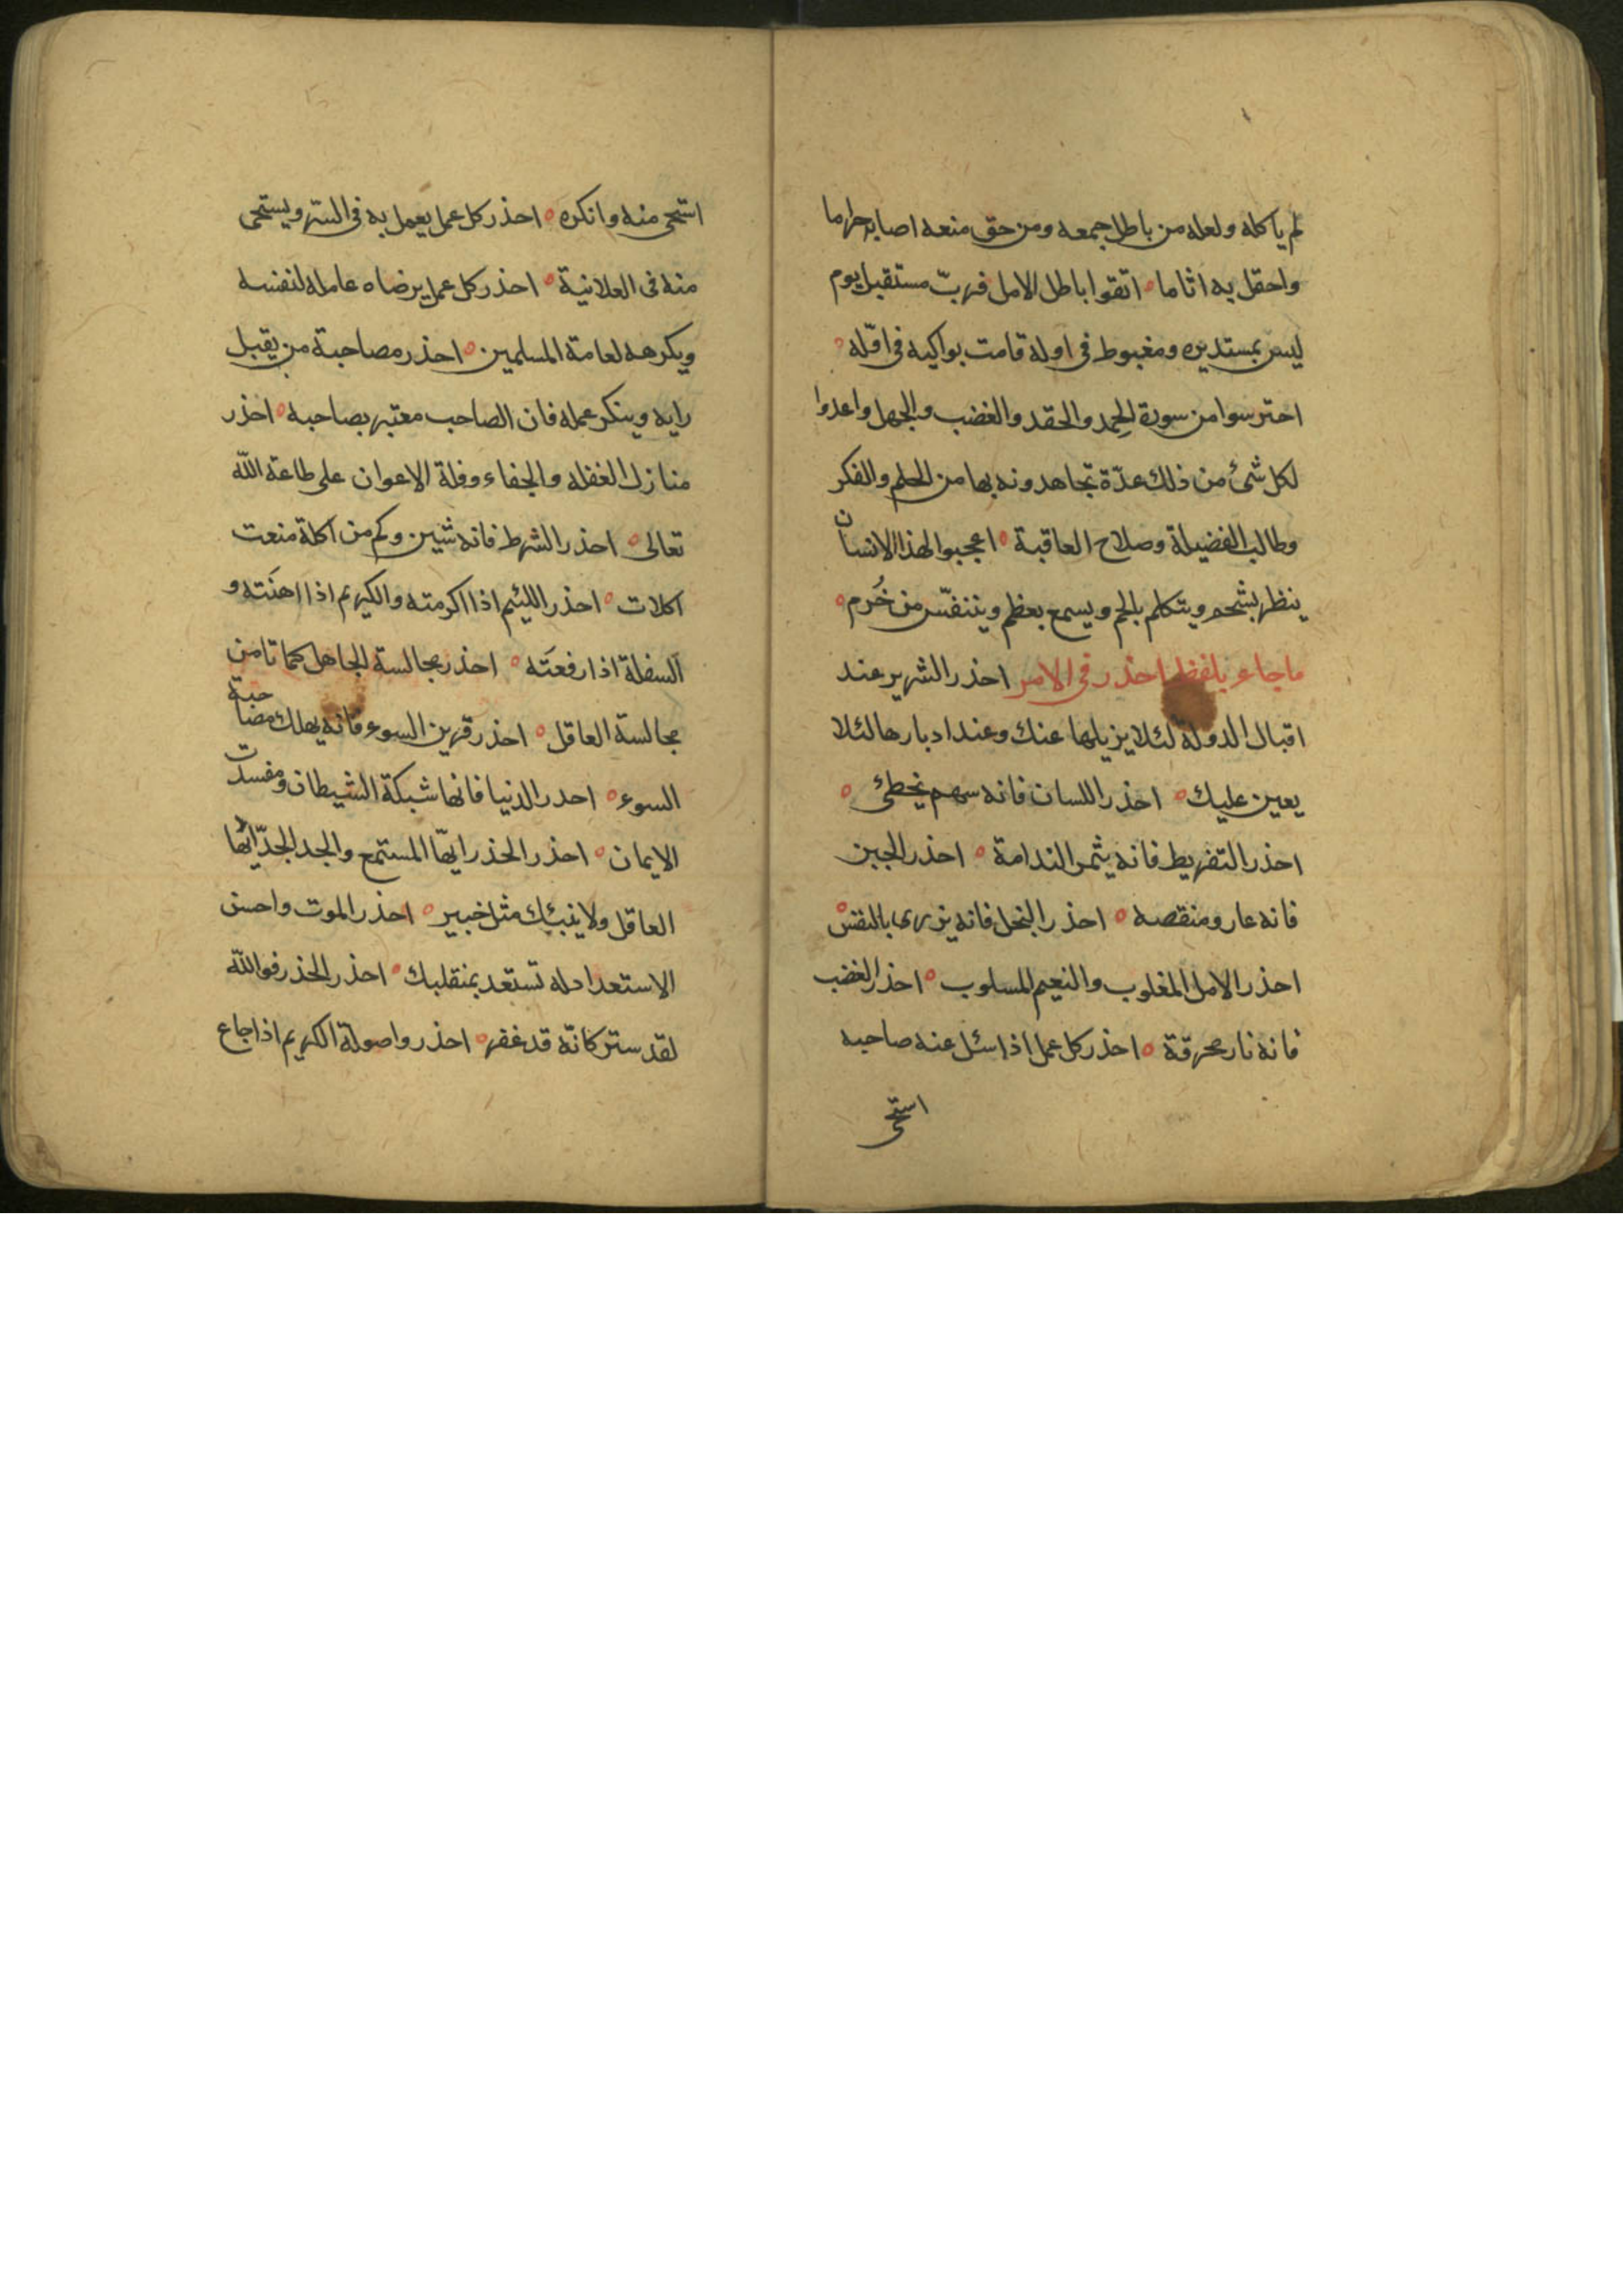 لم ياكله ولعله من باطل جمعه ومن حق منعه اصابه حراما
واحقل به اثاما ه اتقوا باطل الامل فرب مستقبل يوم
ليس بمستدبره ومغبوط فى اوله قامت بواكيه فى اخره ه
احترسوا من سورة الحمد والحقد والغضب والجهل واعدوا
لكل شئ من ذلك عدّة تجاهدونه بها من الحلم والفكر
وطالب الفضيلة وصلاح العاقبة ه اعجبوا لهذا الانسان
ينظر بشحم ويتكلم بلحم ويسمع بعظم ويتنفّس من خُرم ه
ماجاء بلفظ احذر فى الامر احذر الشرير عند
اقبال الدولة لئلا يزيلها عنك وعند ادبارها لئلا
يعين عليك ه احذر اللسان فانه سهم يخطئ ه
احذر التفريط فانه يثمر الندامة ه احذر الجبن
فانه عار ومنقصه ه احذر البخل فانه يزرى بالنفس ه
احذر الامل المغلوب والنعيم المسلوب ه احذر الغضب
فانه نار محرقة ه احذر كل عمل اذا سئل عنه صاحبه
استحى
استحى منه وانكره ه احذر كل عمل يعمل به فى السّر ويستحى
منه فى العلانية ه احذر كل عمل يرضاه عامله لنفسه
ويكرهه لعامة المسلمين ه احذر مصاحبة من يقبل
رايه وينكر عمله فان الصاحب معتبر بصاحبه ه احذر
منازل الغفله والجفاء وقلة الاعوان على طاعة اللّه
تعالى ه احذر الشره فانه شين وكم من اكلة منعت
اكلات ه احذر اللئيم اذا اكرمته والكريم اذا اهَنته و
السفلة اذا رفعتَه ه احذر مجالسة الجاهل كما تامن
مجالسة العاقل ه احذر قرين السوء فانه يهلك مصاحبة
السوء ه احدر الدنيا فانها شبكة الشيطان ومفسدت
الايمان ه احذر الحذر ايّها المستمع والجد الجدّ ايّها
العاقل ولا ينبئك مثل خبير ه احذر الموت واحسن
الاستعداد له تستعد بمنقلبك ه احذر الحذر فوالله
لقد ستر كانّه قد غفر ه احذروا صولة الكريم اذا جاع